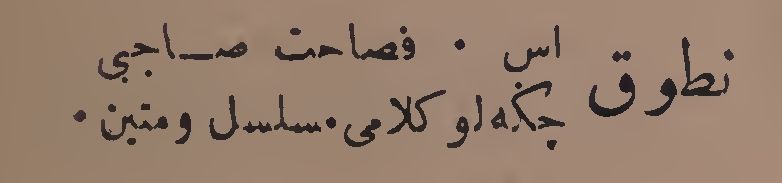 نطوق اس · فصاحت صـاحبی
چکه‌لو کلامی مسلسل ومتین ·